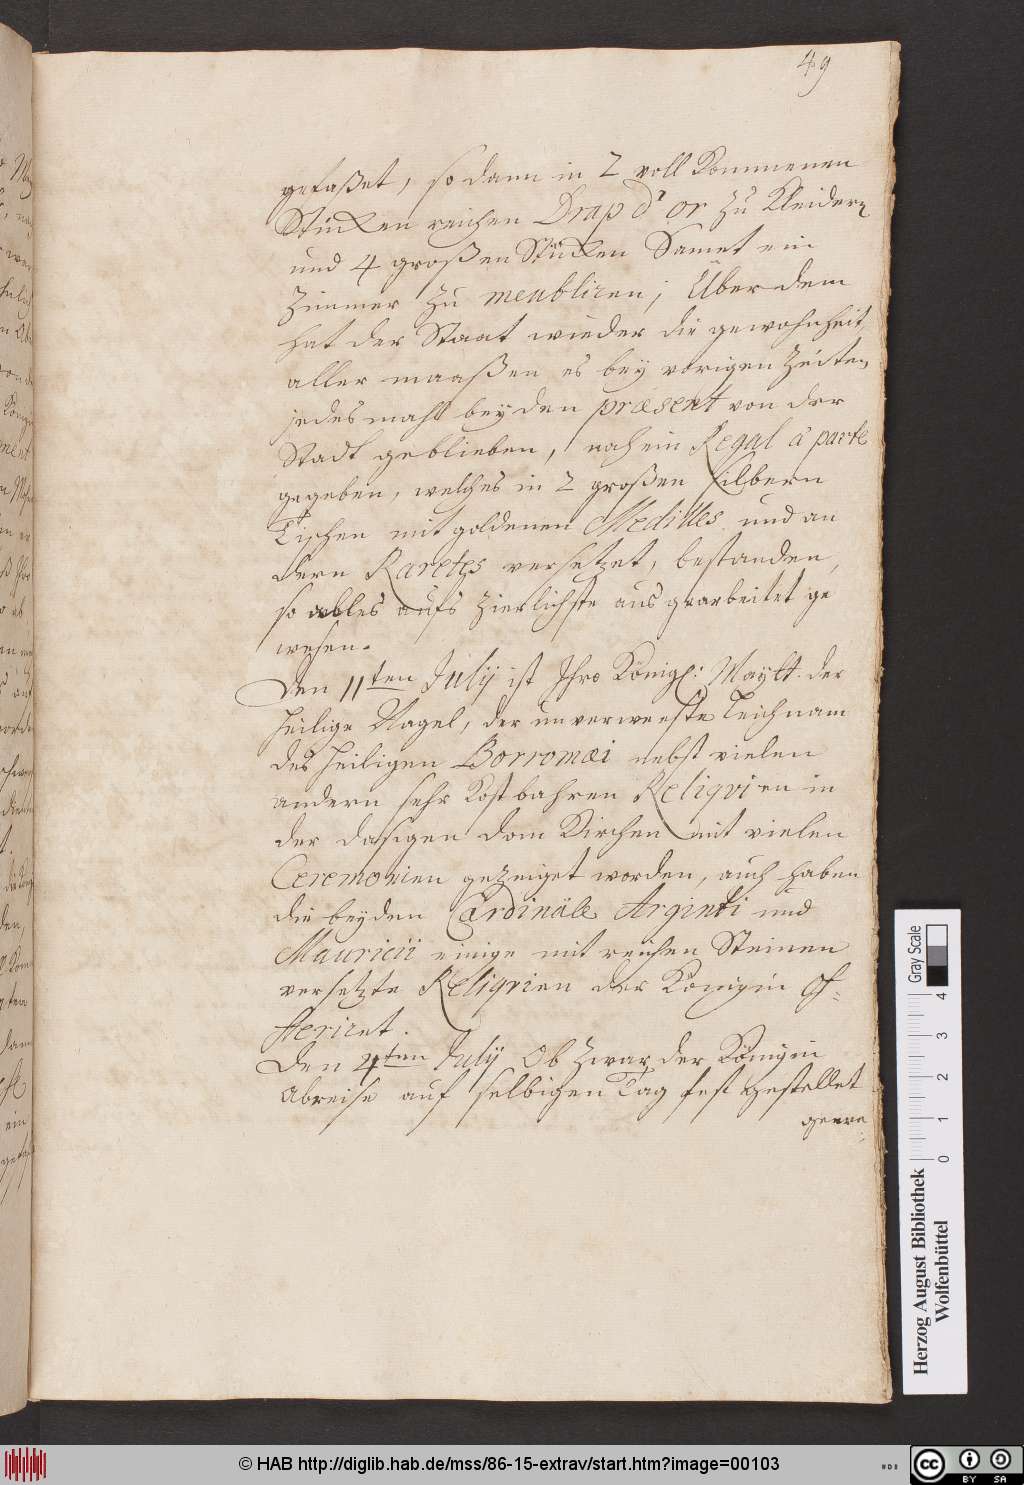 49
gefaßet, so dann in 2 voll Kommenen
Stücken reichen Drap d'or zu Kleidern
und 4 großen Stücken Samet ein
Zimmer zu meubliren; Über dem
hat der Staat wieder die gewohnheit,
aller maaßen es bey vorigen Zeiten
jedesmahl bey den præsent von der
Stadt geblieben, noch ein Regal à parte
gegeben, welches in 2 großen Silbern
Tischen mit goldenen Medilles und an
dern Raretes versetzet, bestanden,
so alles aufs zierlichste ausgearbeitet ge
wesen.
Den 11ten July ist Ihro Königl: Maytt. der
heilige Nagel, der unverweeste Leichnam
des heiligen Borromæi nebst vielen
andern sehr Kostbahren Reliqvien in
der dasigen Dom Kirchen mit vielen
Ceremonien gezeiget worden, auch haben
die beyden Cardinäle Arginti und
Mauricii einige mit reichen Steinen
versetzte Reliqvien der Königin of=
feriret.
Den 4ten July Ob zwar der Königin
Abreise auf selbigen Tag fest gestellet
gewe
Herzog August Bibliothek
Wolfenbüttel
Gray Scale
0 1 2 3 4
© HAB http://diglib.hab.de/mss/86-15-extrav/start.htm?image=00103
cc BY SA